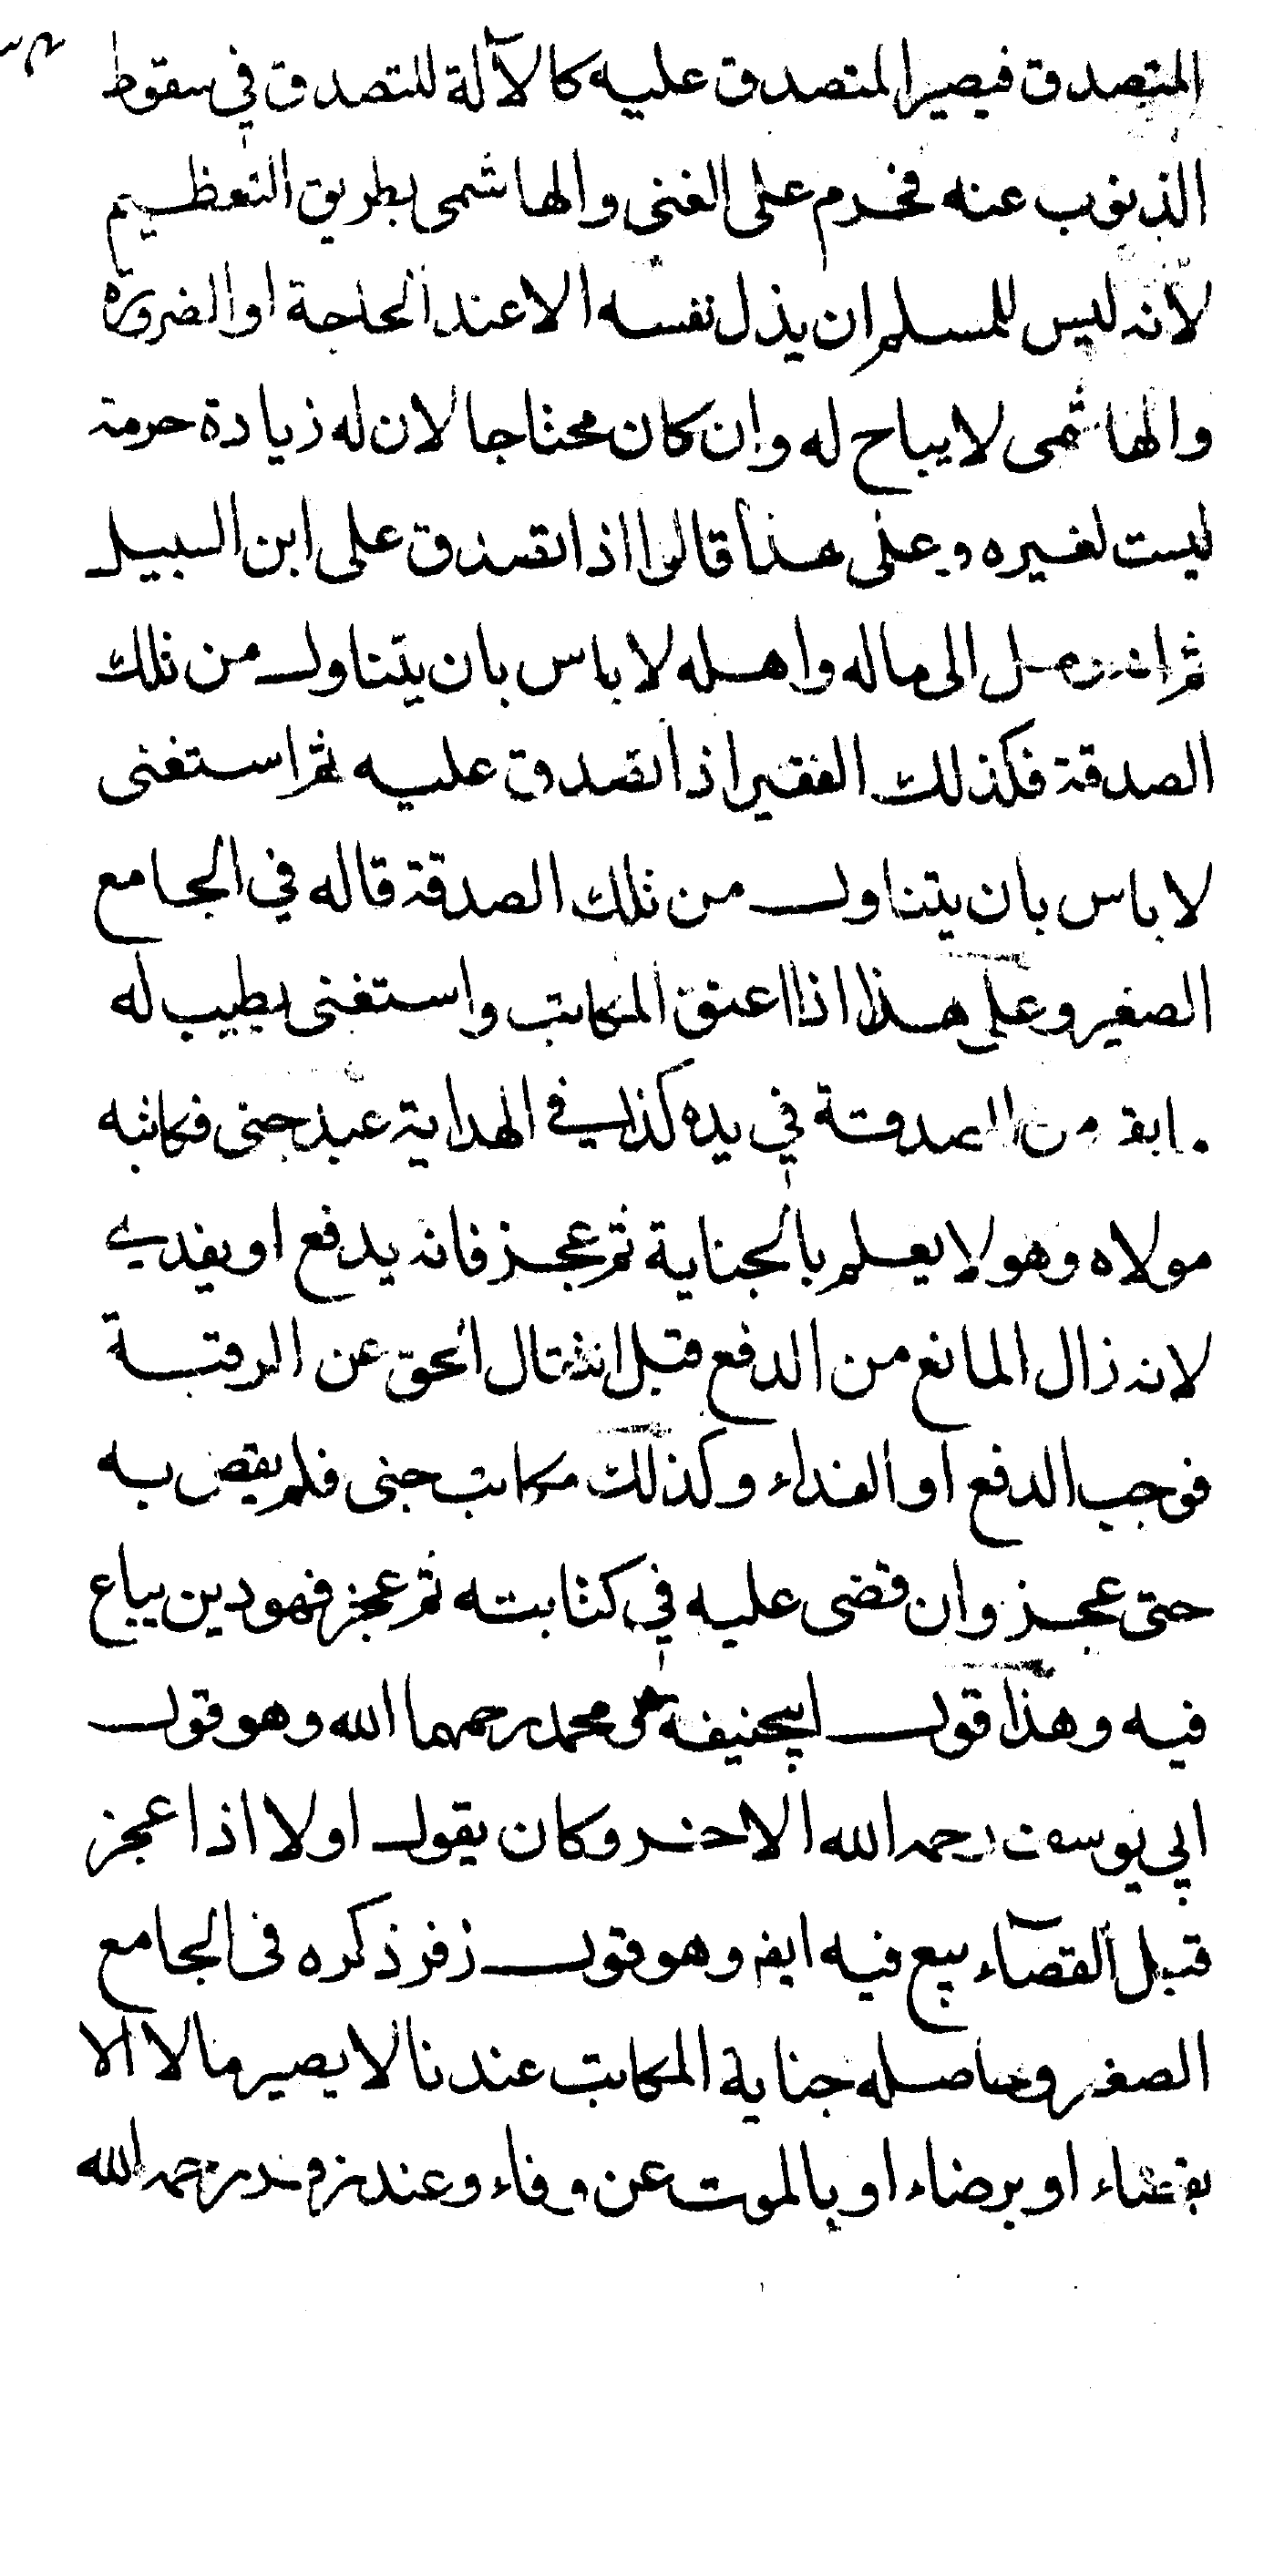 المتصدق فيصير المتصدق عليه كالآلة للتصدق في سقوط
الذنوب عنه فحرم على الغنى والهاشمى بطريق التعظيم
لانه ليس للمسلم ان يذل نفسه الا عند الحاجة او الضرورة
والهاشمى لا يباح له وان كان محتاجا لان له زيادة حرمة
ليست لغيره وعلى هذا قالوا اذا تصدق على ابن السبيل
ثم انه وصل الى ماله واهله لا باس بان يتناول من تلك
الصدقة فكذلك الفقير اذا تصدق عليه ثم استغنى
لا باس بان يتناول من تلك الصدقة قاله في الجامع
الصغير وعلى هذا اذا اعتق المكاتب واستغنى يطيب له
ما بقى من الصدقة في يده كذا في الهداية عبد جنى فكاتبه
مولاه وهو لا يعلم بالجناية ثم عجز فانه يدفع او يفدي
لانه زال المانع من الدفع قبل انتقال الحق عن الرقبة
فوجب الدفع او الفداء وكذلك مكاتب جنى فلم يقض به
حتى عجز وان قضى عليه في كتابته ثم عجز فهو دين يباع
فيه وهذا قول ابيحنيفة ومحمد رحمهما الله وهو قول
ابي يوسف رحمه الله الاخر وكان يقول اولا اذا عجز
قبل القضآء بيع فيه ايض وهو قول زفر ذكره فى الجامع
الصغير وحاصله جناية المكاتب عندنا لا يصير مالا الا
بقضاء او برضاء او بالموت عن وفاء وعند زفر رحمه الله